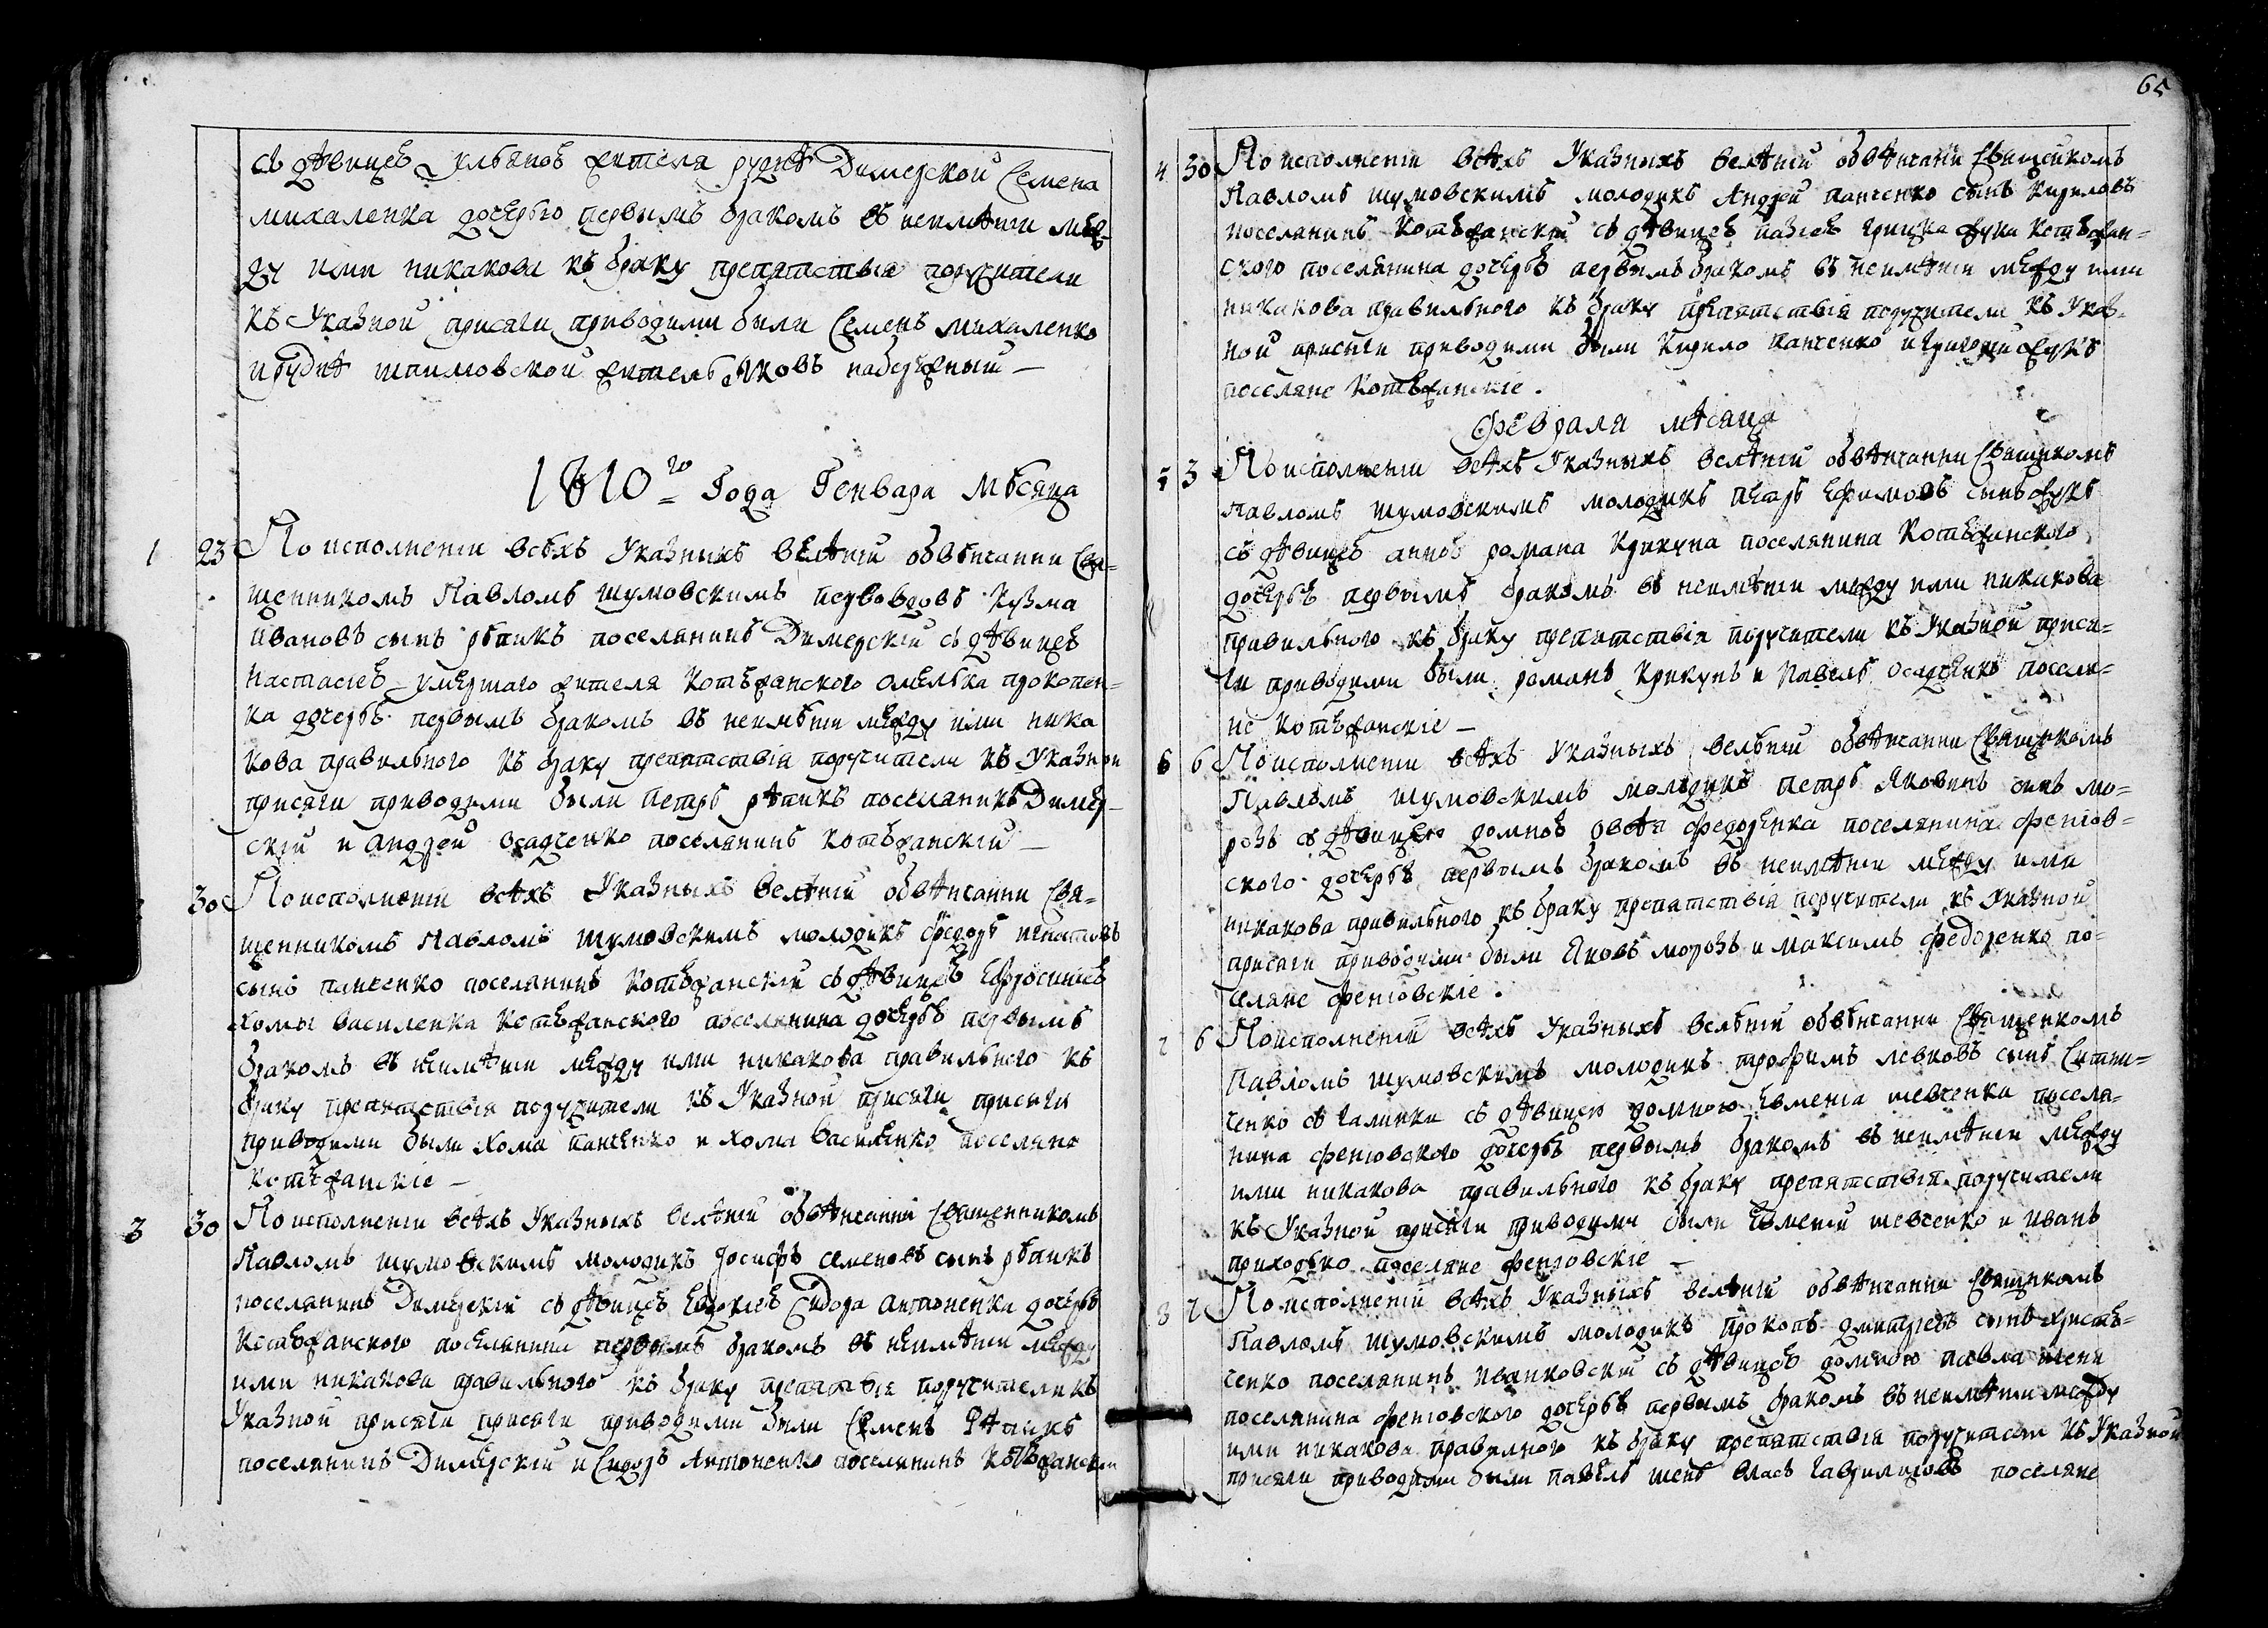 съ дѣвицеѣ ульяноѣ жителя рудиѣ Димерской Семена
михаленка дочерью первымъ бракомъ въ неимѣніи меж-
ду ими никакова къ браку препятствія поручители
къ Указной присяги приводими были Семенъ михаленко
и рудиѣ житель Яковъ набережный —
1810го Года Генвара Мѣсяца
1 23 По исполненіи всѣхъ Указныхъ велѣній обвѣнчанни Свя-
щенникомъ Павломъ шумовскимъ первовдовъ Кузма
ивановъ сынъ рѣпикъ поселянинъ Димерскій съ дѣвицеѣ
Настасіеѣ умершаго жителя Котѣжанского омелька прокопен-
ка дочерѣ первымъ бракомъ въ неимѣніи между ими ника
кова правильного къ браку препятствія поручители къ Указной
присяги приводими были Петръ рѣпикъ поселянинъ Димер-
скій и андрей осадченко поселянинъ котѣжанскій —
30 По исполненіи всѣхъ Указныхъ велѣній обвѣнчанни Свя-
щенникомъ Павломъ шумовскимъ молодикъ федоръ игнатовъ
сынъ панченко поселянинъ котѣжанскій съ дѣвицеѣ Ефросиніеѣ
хомы василенка котѣжанского поселянина дочерѣ первымъ
бракомъ въ неимѣніи между ими никакова правильного къ
браку препятствія поручители къ Указной присяги присяги
приводими были хома панченко и хома василенко поселяне
котѣжанскіе —
3 30 По исполненіи всѣхъ Указныхъ велѣній обвѣнчанни Священникомъ
Павломъ шумовскимъ молодикъ Іосифъ семеновъ сынъ рѣпикъ
поселянинъ Димерскій съ дѣвицеѣ Евдокіеѣ Сидора антоненка дочерѣ
Котѣжанского поселянина первымъ бракомъ въ неимѣніи между
ими никакова правильного къ браку препятствія поручители къ
Указной присяги присяги приводими были Семенъ Рѣпикъ
поселянинъ Димерскій и Сидоръ Антоненко поселянинъ Котѣжанскій
65
4 30 По исполненіи всѣхъ Указныхъ велѣній обвѣнчани Свящеикомъ
Павломъ шумовскимъ молодикъ Андрей панченко сынъ Кириловъ
поселянинъ Котѣжанскій съ дѣвицеѣ пазіеѣ грицка жука Котѣжан-
ского поселянина дочерѣ первымъ бракомъ въ неимѣніи между ими
никакова правильного къ браку препятствія поручители къ Указ-
ной присяги приводими были Кирило панченко и григорій жукъ
поселяне Котѣжанскіе.
февраля мѣсяца
5 3 По исполненіи всѣхъ Указныхъ велѣній обвѣнчанни Свящникомъ
Павломъ шумовскимъ молодикъ петръ Ефимовъ сынъ жукъ
съ дѣвицеѣ анноѣ романа Крикуна поселянина Котѣжанского
дочерѣ первымъ бракомъ въ неимѣніи между ими никакова
правильного къ браку препятствія поручители къ Указной прися-
ги приводими были романъ Крикунъ и Павелъ осадченко поселя-
не котѣжанскіе —
6 6 По исполненіи всѣхъ Указныхъ велѣній обвѣнчанни Священкомъ
Павломъ шумовскимъ молодикъ Петръ Яковинъ синъ мо-
розъ съ дѣвицею домноѣ федоренка поселянина фенов-
ского дочерѣ первымъ бракомъ въ неимѣніи между ими
никакова правильного къ браку препятствія поручители къ Указной
присяги приводими были Яковъ морозъ и максимъ федоренко по-
селяне феновскіе.
7 6 По исполненіи всѣхъ Указныхъ велѣній обвѣнчанни Священкомъ
Павломъ шумовскимъ молодикъ трофимъ левковъ сынъ Ситни-
ченко съ Галинки съ дѣвицею домною Евменіа шевченка поселя-
нина феновского дочерѣ первымъ бракомъ въ неимѣніи между
ими никакова правильного къ браку препятствія поручители
къ Указной присяги приводими были Евменій шевченко и иванъ
приходько поселяне феновскіе —
8 7 По исполненіи всѣхъ Указныхъ велѣній обвѣнчанни Свящникомъ
Павломъ шумовскимъ молодикъ прокопъ дмитревъ сынъ
ченко поселянинъ иванковскій съ дѣвицеѣ домною павла шени
поселянина феновского дочерѣ первымъ бракомъ въ неимѣніи между
ими никакова правилного къ браку препятствія поручители къ Указной
присяги приводими были павелъ шень власъ поселяне